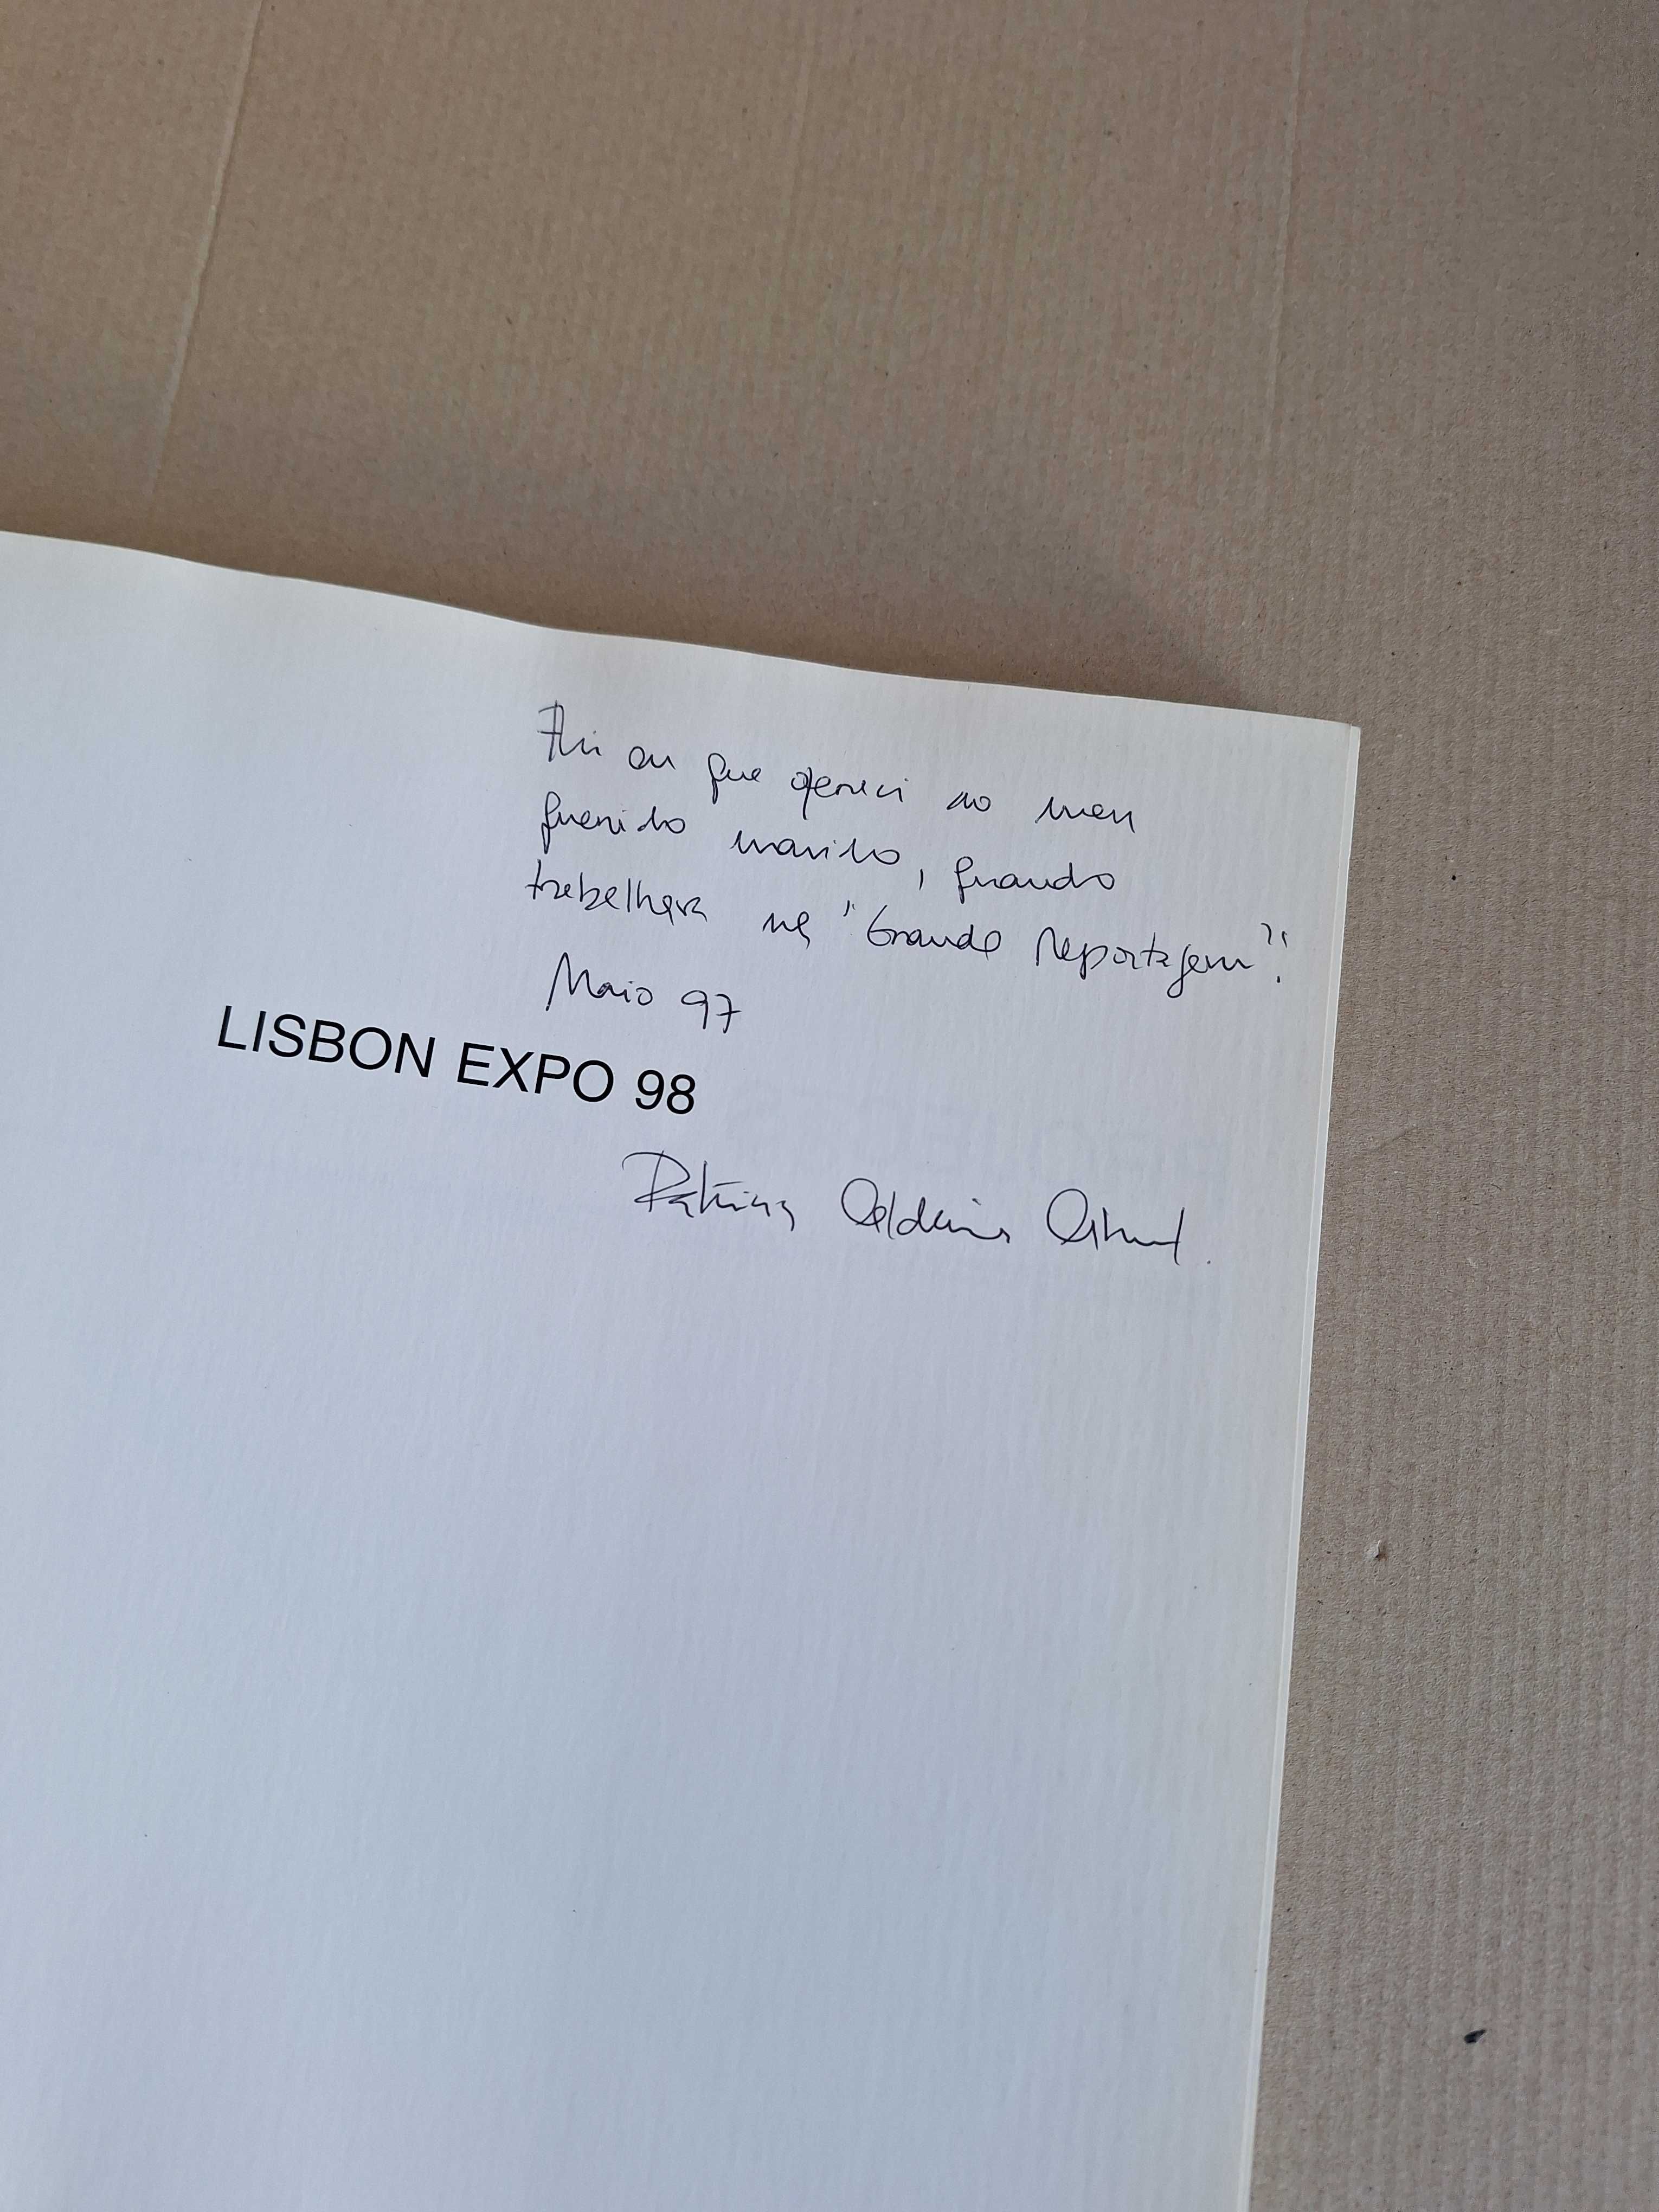 Fui eu que ofereci ao meu
querido marido, quando
trabalhava na "Grande Reportagem".
Maio 97
LISBON EXPO 98
Patrícia